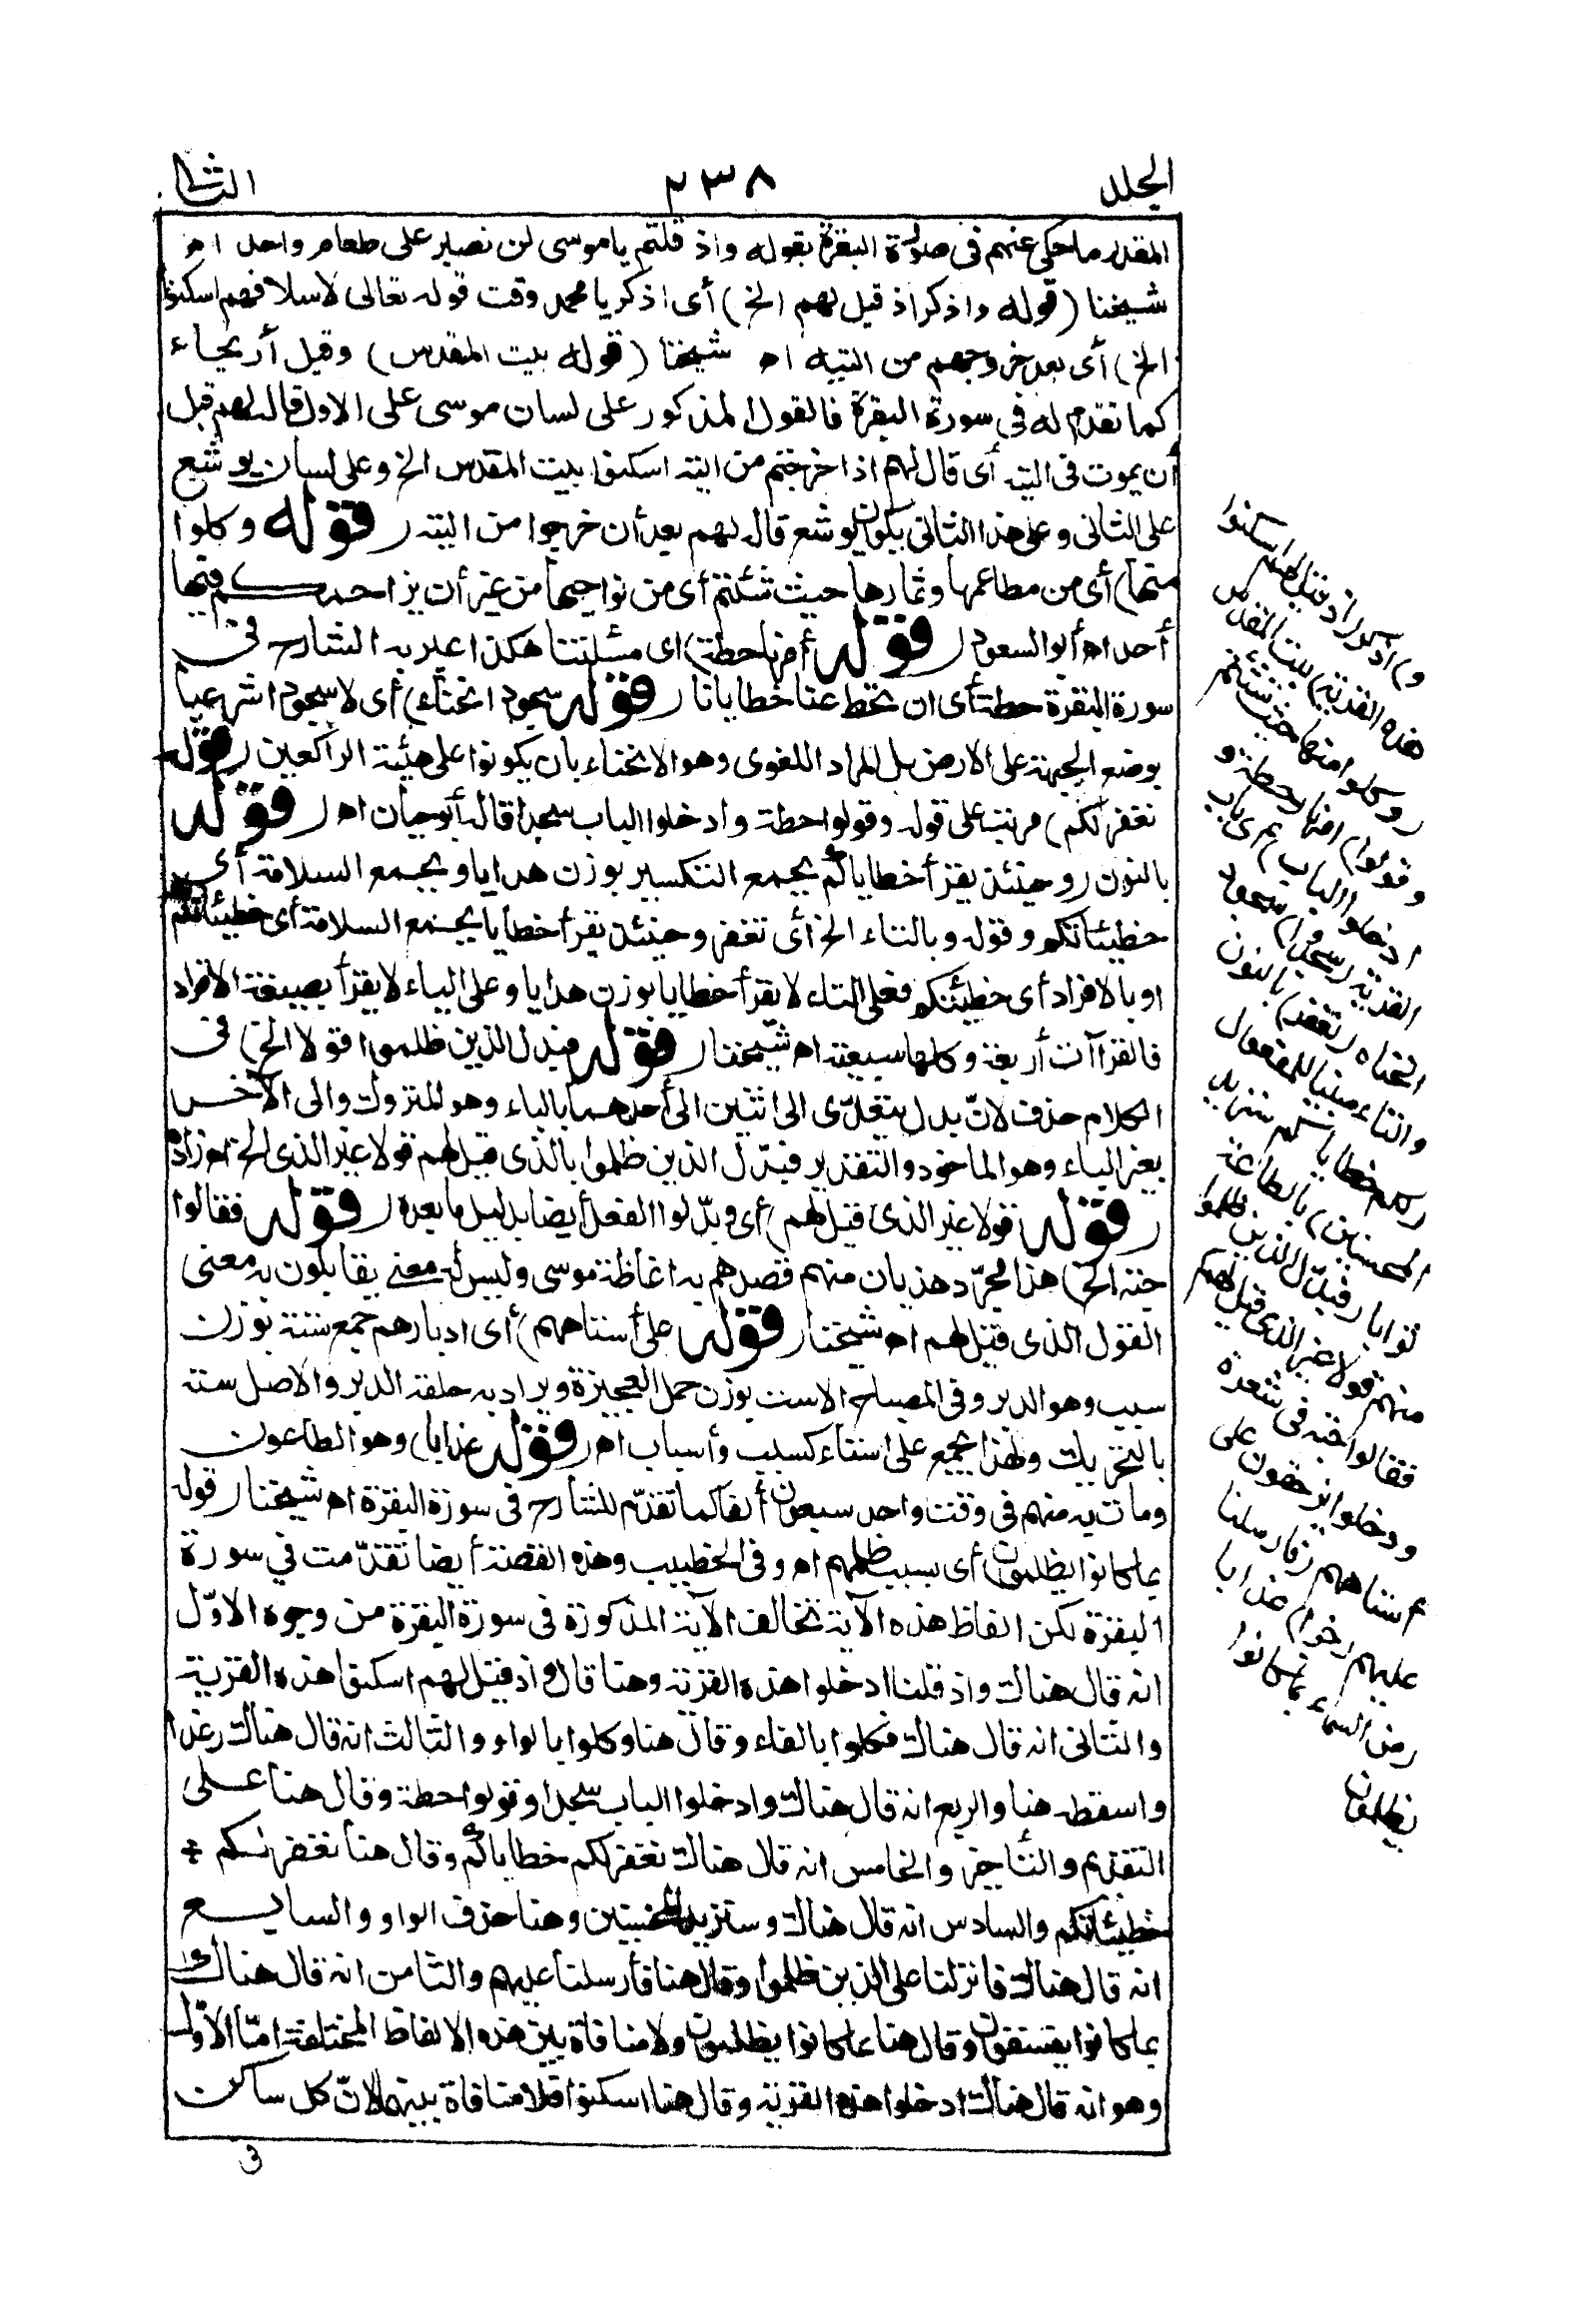 الجلد
٢٣٨
الثانى
المقدر ما حكى عنهم فى صورة البقرة بقوله واذ قلتم ياموسى لن نصبر على طعام واحد اه
شيخنا (قوله واذكر اذ قيل لهم الخ) أى اذكر يا محمد وقت قوله تعالى لاسلافهم اسكنوا
الخ) أى بعد خروجهم من التيه اه شيخنا (قوله بيت المقدس) وقيل أريحاء
كما تقدم له فى سورة البقرة فالقول المذكور على لسان موسى على الاول قال لهم قبل
أن يموت فى التيه أى قال لهم اذا خرجتم من التيه اسكنوا بيت المقدس الخ وعلى لسان يوشع
على الثانى وعلى هذا الثانى يكون يوشع قال لهم بعد أن خرجوا من التيه (قوله وكلوا
منها) أى من مطاعمها وثمارها حيث شئتم أى من نواحيها من غير أن يزاحمكم فيها
أحد اه أبو السعود (قوله أمرنا حطة) اى مسئلتنا هكذا عبر به الشارح فى
سورة البقرة حطة أى ان تحط عنا خطايانا (قوله سجود انحناء) أى لا سجودا شرعيا
بوضع الجبهة على الارض بل المراد اللغوى وهو الانحناء بان يكونوا على هيئة الراكعين (قوله
نغفر لكم) مرتب على قوله وقولوا حطة وادخلوا الباب سجدا قال أبو حيان اه (قوله
بالنون) وحينئذ يقرأ خطاياكم بجمع التكسير بوزن هدايا وبجمع السلامة أى
خطيئاتكم وقوله وبالتاء الخ أى تغفر وحينئذ يقرأ خطايا بجمع السلامة أى خطيئاتكم
او بالافراد أى خطيئتكم فعلى التاء لا يقرأ خطايا بوزن هدايا وعلى الياء لا يقرأ بصيغة الافراد
فالقراآت أربعة وكلها سبعية اه شيخنا (قوله فبدل الذين ظلموا قولا الخ) فى
الكلام حذف لانّ بدل يتعدّى الى اثنين الى أحدهما بالباء وهو المتروك والى الآخر
بغير الباء وهو الماخوذ والتقدير فبدّل الذين ظلموا بالذى قيل لهم قولا غير الذى الخ اه زاده
(قوله قولا غير الذى قيل لهم) أى وبدّلوا الفعل أيضا بدليل ما بعده (قوله فقالوا
حبة الخ) هذا مجرّد هذيان منهم قصدهم به اغاظة موسى وليس له معنى يقابلون به معنى
القول الذى قيل لهم اه شيخنا (قوله على أستاههم) أى ادبارهم جمع سته بوزن
سبب وهو الدبر وفى المصباح الاست بوزن حمل العجيزة ويراد به حلقة الدبر والاصل سته
بالتحريك ولهذا يجمع على استاه كسبب وأسباب اه (قوله عذابا) وهو الطاعون
ومات به منهم فى وقت واحد سبعون ألفا كما تقدّم للشارح فى سورة البقرة اه شيخنا (قوله
بما كانوا يظلمون) أى بسبب ظلمهم اه وفى الخطيب وهذه القصة أيضا تقدّمت في سورة
البقرة لكن الفاظ هذه الآية تخالف الآية المذكورة فى سورة البقرة من وجوه الاوّل
انه قال هناك واذ قلنا ادخلوا هذه القرية وهنا قال واذ قيل لهم اسكنوا هذه القرية
والثانى انه قال هناك فكلوا بالفاء وقال هنا وكلوا بالواو والثالث انه قال هناك رغدا
واسقطه هنا والربع انه قال هناك وادخلوا الباب سجدا وقولوا حطة وقال هنا على
التقديم والتأخير والخامس انه قال هناك نغفر لكم خطاياكم وقال هنا نغفر لكم
خطيئاتكم والسادس انه قال هناك وسنزيد المحسنين وهنا حذف الواو والسابع
انه قال هناك فانزلنا على الذين ظلموا وقال هنا فأرسلنا عليهم والثامن انه قال هناك
بما كانوا يفسقون وقال هنا بما كانوا يظلمون ولا منافاة بين هذه الالفاظ المختلفة امّا الاوّل
وهو انه قال هناك ادخلوا هذه القرية وقال هنا اسكنوا فلا منافاة بينهما لانّ كل ساكن
و) اذكر (اذ قيل لهم اسكنوا
هذه القرية) بيت المقدس
(وكلوا منها حيث شئتم
وقولوا) امرنا (حطة و
ادخلوا الباب) أى باب
القرية (سجدا) سجود
انحناء (نغفر) بالنون
والتاء مبنيا للمفعول
(لكم خطاياكم سنزيد
المحسنين) بالطاعة
ثوابا (فبدّل الذين ظلموا
منهم قولا غير الذى قيل لهم
فقالوا حبة فى شعرة
ودخلوا يزحفون على
أستاههم (فارسلنا
عليهم رجزا) عذابا
(من السماء بما كانوا
يظلمون